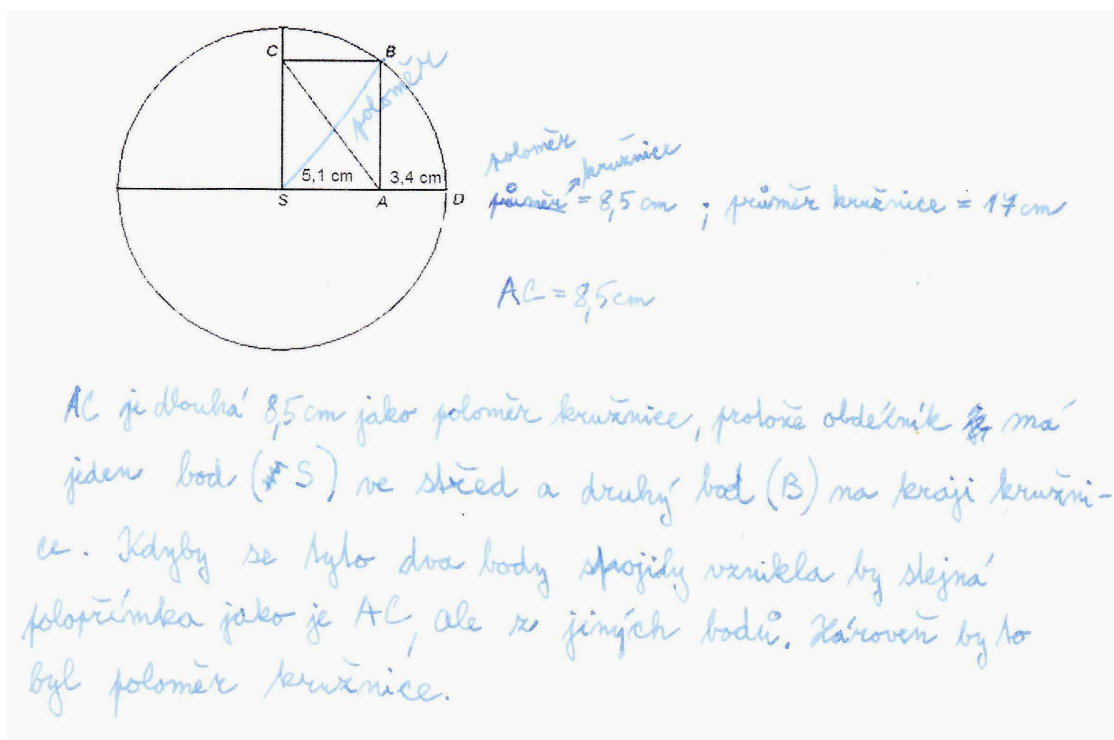 C
B
poloměr
5,1 cm
3,4 cm
S
A
D
poloměr
průměr kružnice = 8,5 cm ; průměr kružnice = 17 cm
AC = 8,5 cm
AC je dlouhá 8,5 cm jako poloměr kružnice, protože obdélník má
jeden bod (S) ve střed a druhý bod (B) na kraji kružni-
ce. Kdyby se tyto dva body spojidy vznikla by stejná
polopřímka jako je AC, ale z jiných bodů. Zároveň by to
byl poloměr kružnice.